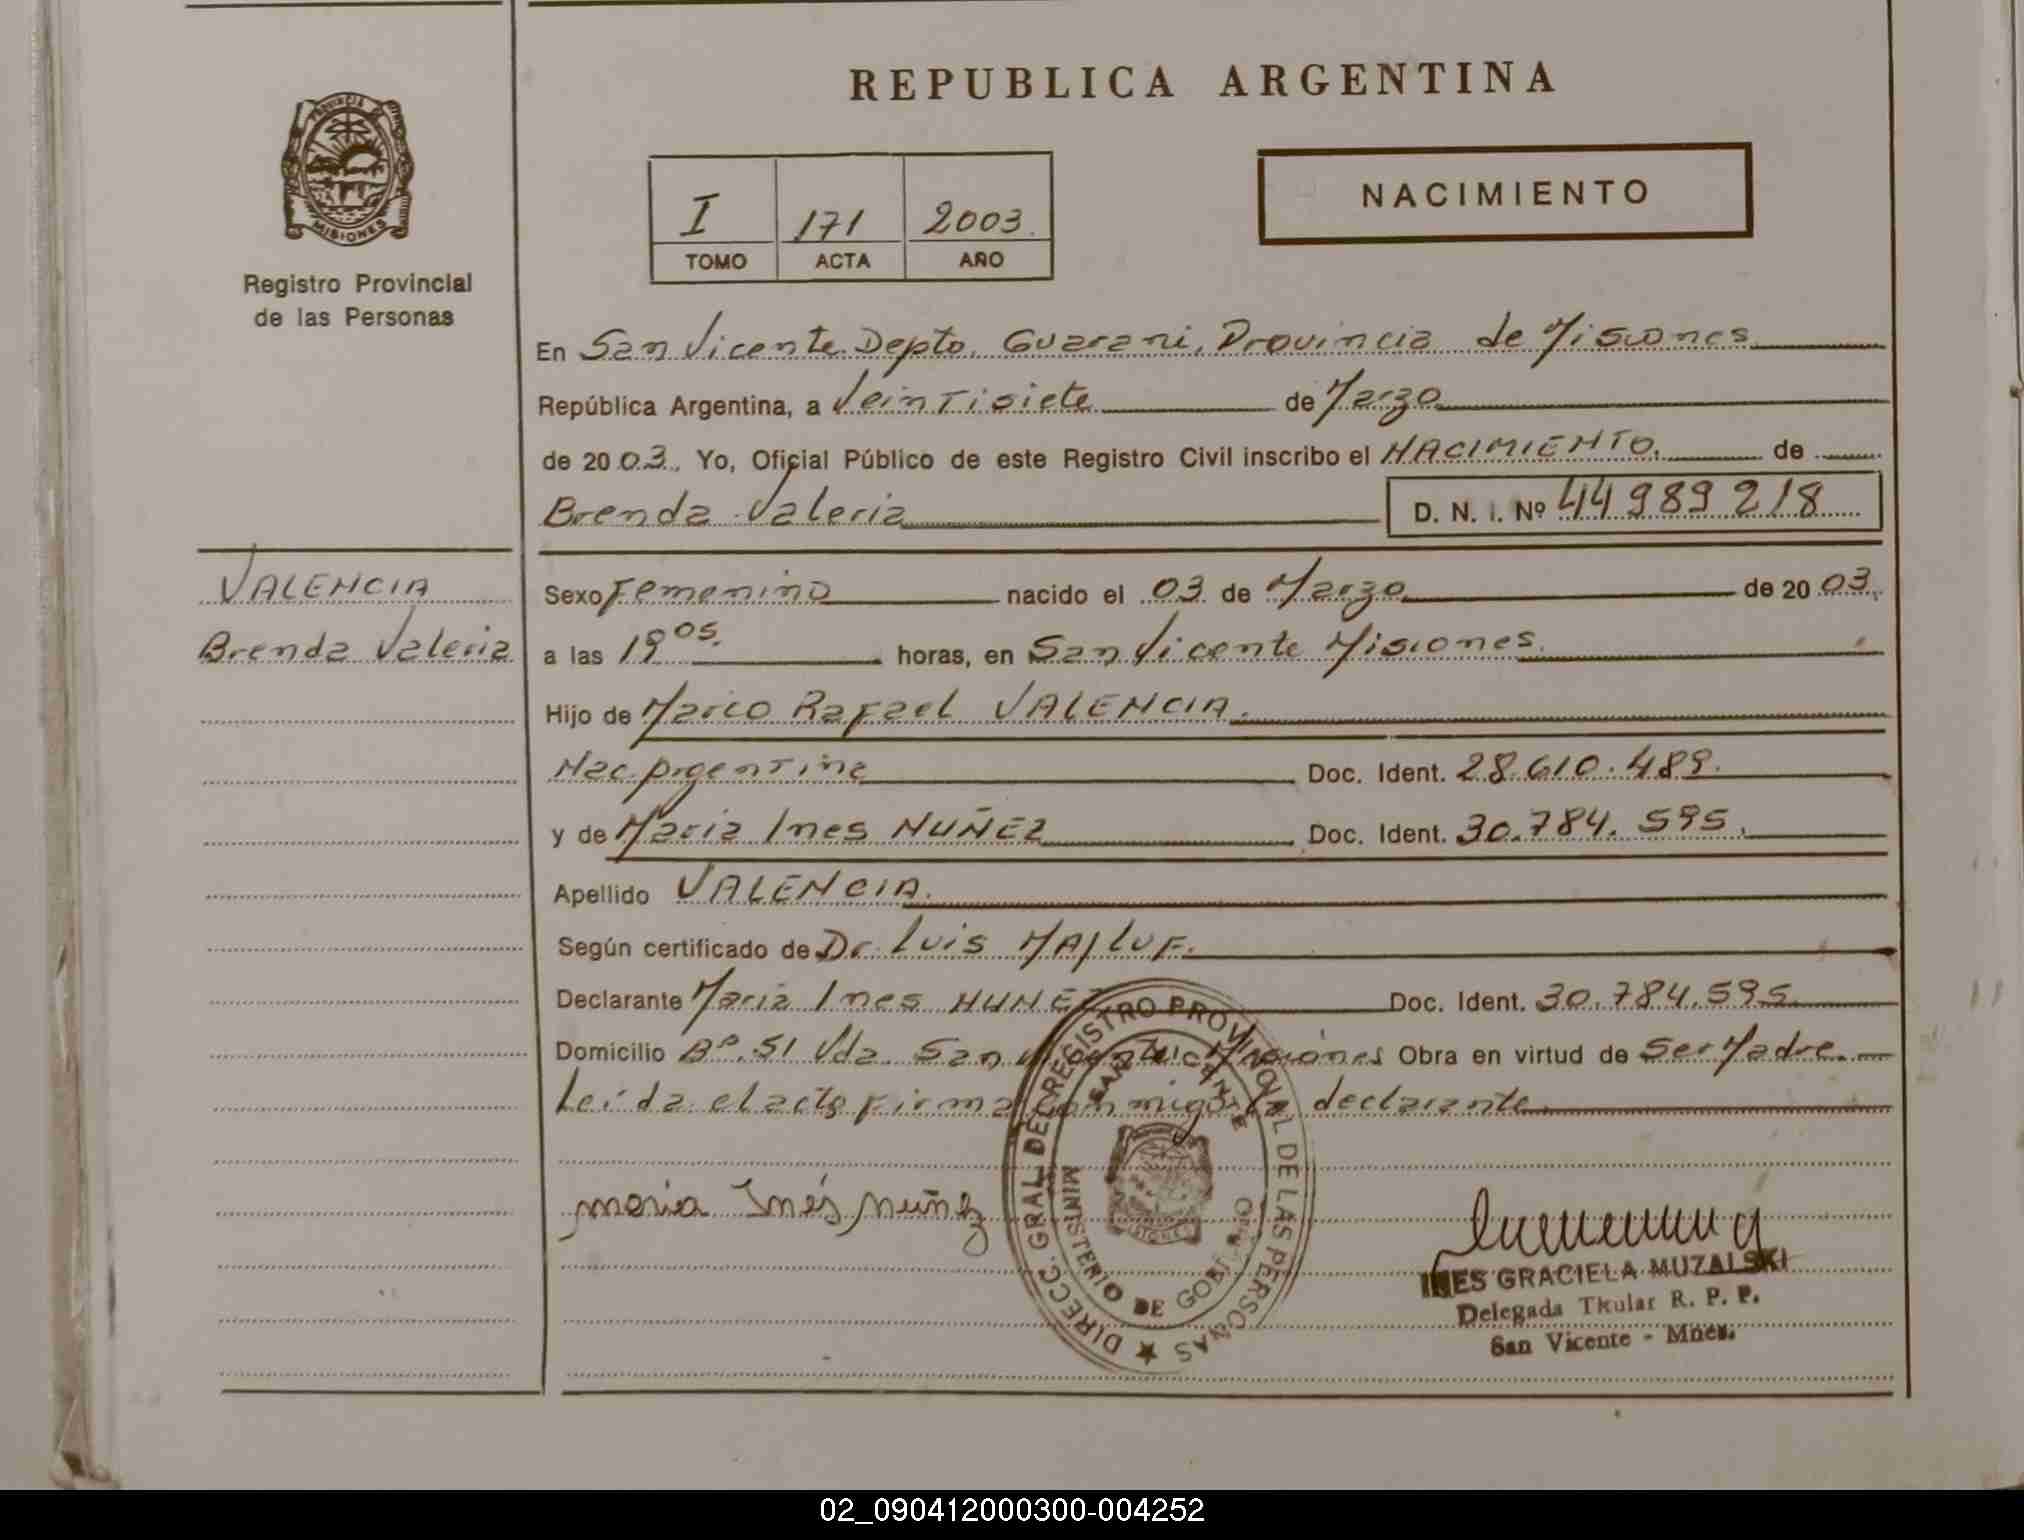 REPUBLICA ARGENTINA
PROVINCIA DE
MISIONES
Registro Provincial
de las Personas
I 171 2003.
TOMO ACTA AÑO
NACIMIENTO
En San Vicente Depto. Guarani, Provincia de Misiones
República Argentina, a Veintisiete de Marzo
de 2003. Yo, Oficial Público de este Registro Civil inscribo el NACIMIENTO. de
Brenda Valeria D. N. I. Nº 44989218
VALENCIA
Brenda Valeria
Sexo Femenino nacido el 03 de Marzo de 2003.
a las 19 05. horas, en San Vicente Misiones.
Hijo de Marco Rafael VALENCIA.
Nac. Argentina Doc. Ident. 28.610.489.
y de Maria Ines NUÑEZ Doc. Ident. 30.784.595.
Apellido VALENCIA.
Según certificado de Dr. Luis MAJLUF.
Declarante Maria Ines NUÑEZ Doc. Ident. 30.784.595.
Domicilio Bº. 51 Vda. San Vicente Misiones Obra en virtud de Ser Madre.
Leída el acta firma conmigo la declarante.
DIRECC. GRAL. DEL REGISTRO PROVINCIAL DE LAS PERSONAS
SAN VICENTE
MINISTERIO DE GOBIERNO
maria Inés Nuñez
INES GRACIELA MUZALSKI
Delegada Titular R. P. P.
San Vicente - Mnes.
02_090412000300-004252